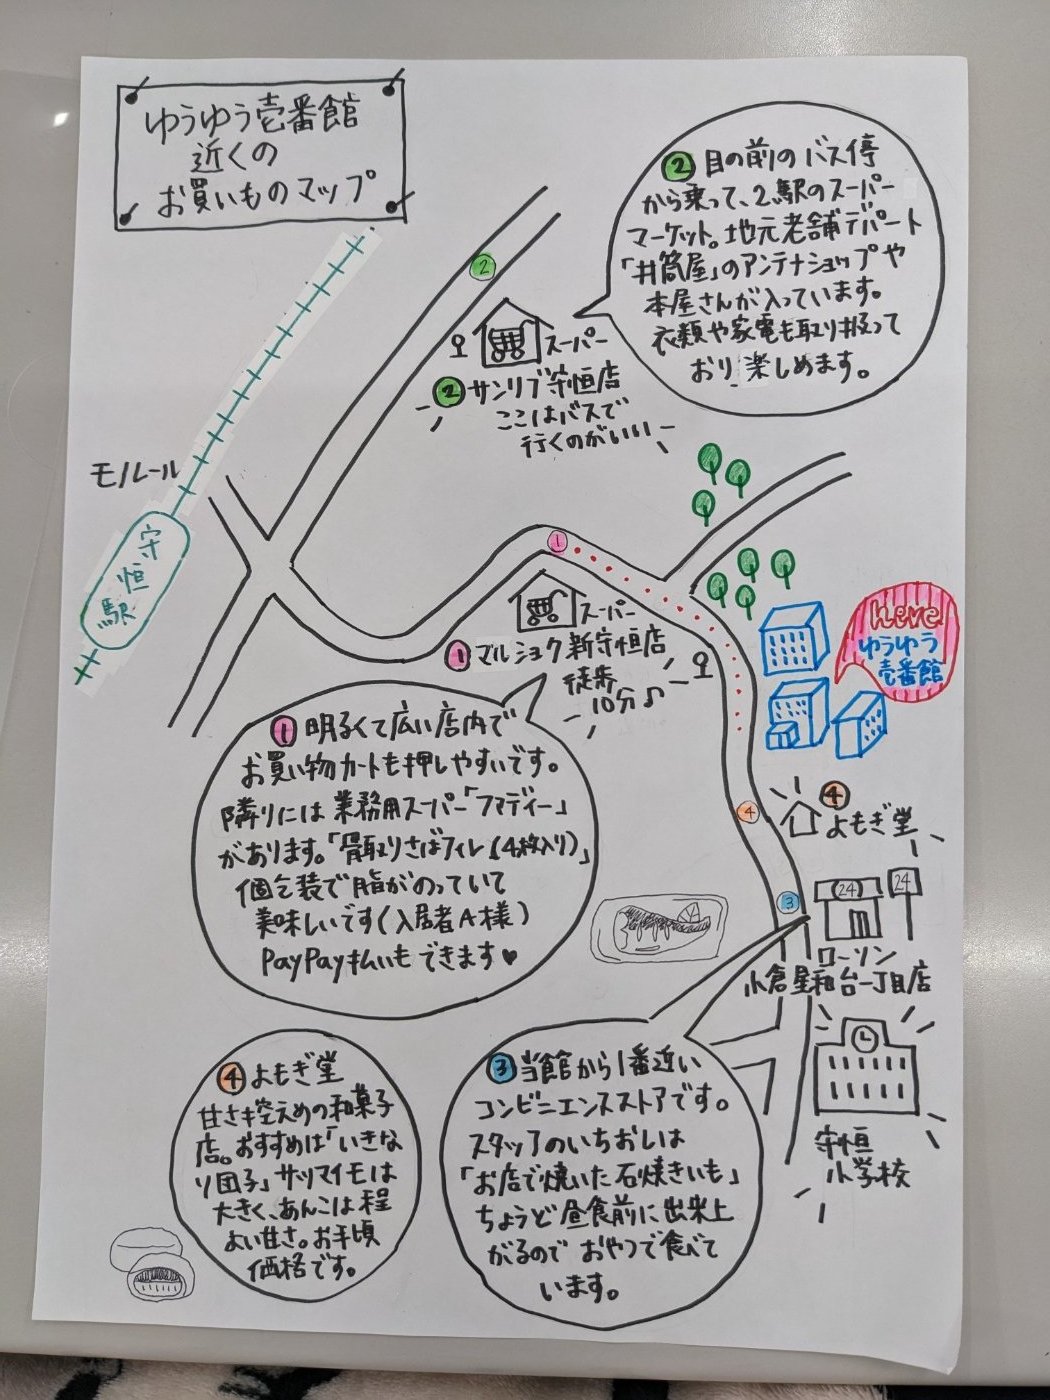 ゆうゆう壱番館
近くの
お買いものマップ
② 目の前のバス停
から乗って、2駅のスーパー
マーケット。地元老舗デパート
「井筒屋」のアンテナショップや
本屋さんが入っています。
衣類や家電も取り扱って
おり楽しめます。
②
スーパー
② サンリブ守恒店
ここはバスで
行くのがいい
モノレール
守恒駅
①
スーパー
① マルショク新守恒店
徒歩
10分♪
here
ゆうゆう
壱番館
① 明るくて広い店内で
お買い物カートも押しやすいです。
隣りには業務用スーパー「フマディー」
があります。「骨取りさばフィレ(4枚入り)」
個包装で脂がのっていて
美味しいです(入居者A様)
PayPay払いもできます♥
④
④
よもぎ堂
③
24
24
ローソン
小倉星和台一丁目店
守恒
小学校
④ よもぎ堂
甘さ控えめの和菓子
店。おすすめは「いきな
り団子」サツマイモは
大きく、あんこは程
よい甘さ。お手頃
価格です。
③ 当館から1番近い
コンビニエンスストアです。
スタッフのいちおしは
「お店で焼いた石焼きいも」
ちょうど昼食前に出来上
がるのでおやつで食べて
います。